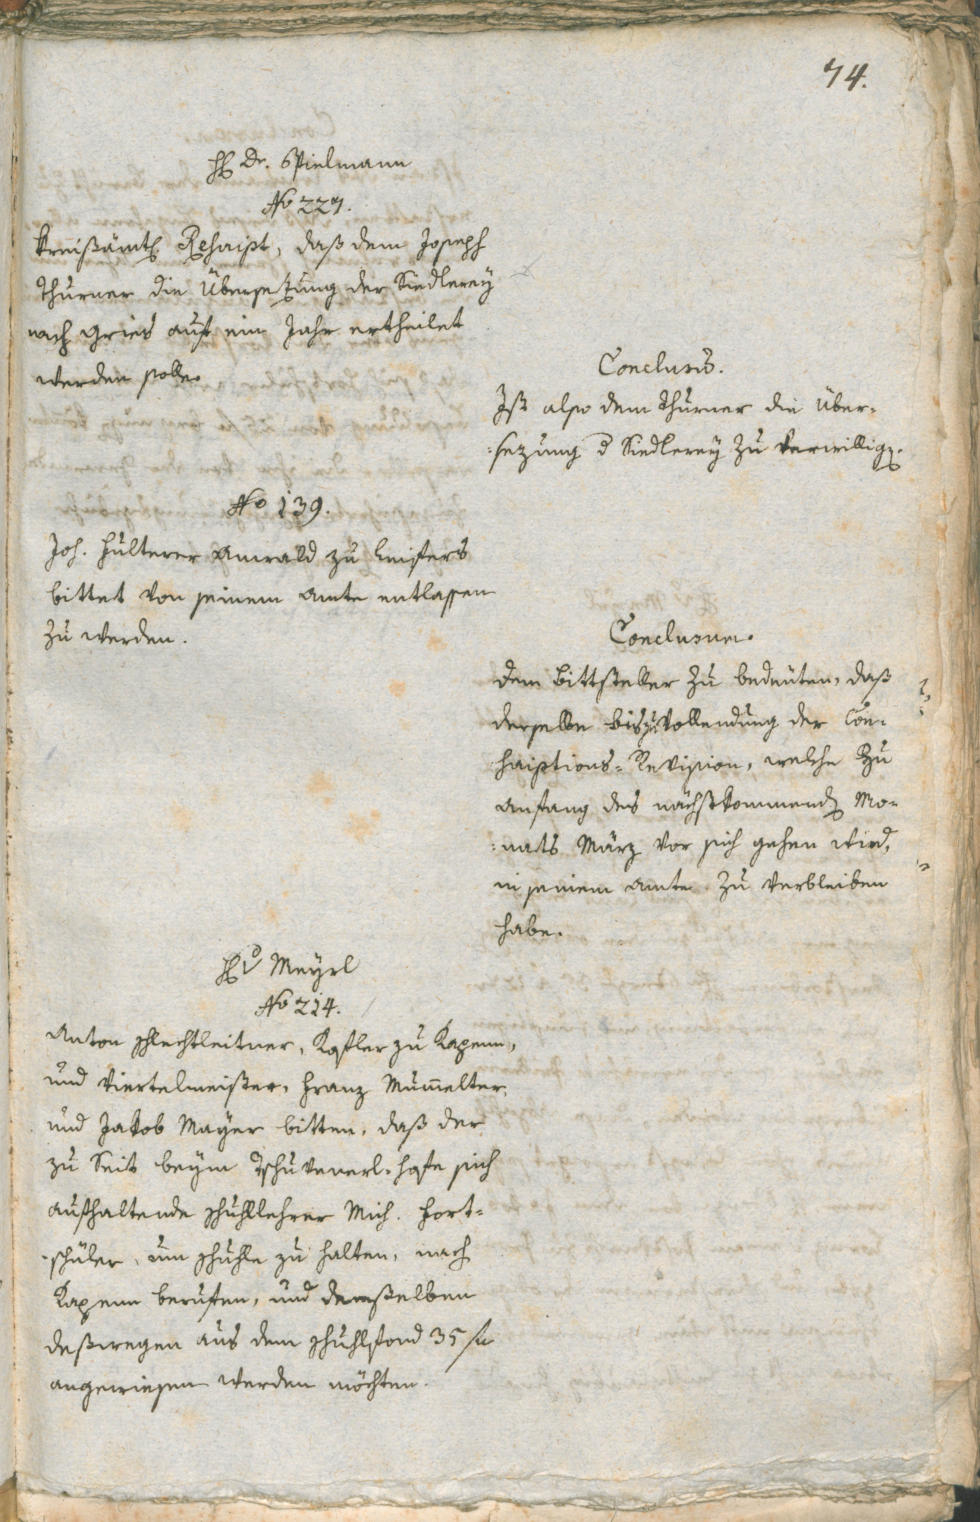 74.
H Dr. Spielmann
No 227.
Kreißämtl. Rescript, daß dem Joseph
Thurner die Übersetzung der Siedlerey
nach Gries auf ein Jahr ertheilet
werden solle.
Conclusũ.
Ist also dem Thurner die Über-
:setzung d Siedlerey zu verwillig.
No 139.
Joh. Hülterer Anwald zu Leifers
bittet von seinem Amte entlassen
zu werden.
Conclusum.
dem Bittsteller zu bedeuten, daß
derselbe bis zu Vollendung der Con-
scriptions-Revision, welche zu
Anfang des nächstkommend Mo-
:nats März vor sich gehen wird,
in seinem Amte zu verbleiben
habe.
H v Meyrl
No 214.
Anton Schlechtleitner, Kofler zu Kapenn,
und Viertelmeister, Franz Mumelter,
und Jakob Mayer bitten, daß der
zu Seit beym Tschuvenerl-Hofe sich
aufhaltende Schullehrer Mich. Fort-
:schüler, um Schuhle zu halten, nach
Kapenn berufen, und demselben
deßwegen aus dem Schuhlfond 35 fl
angewiesen werden möchten.